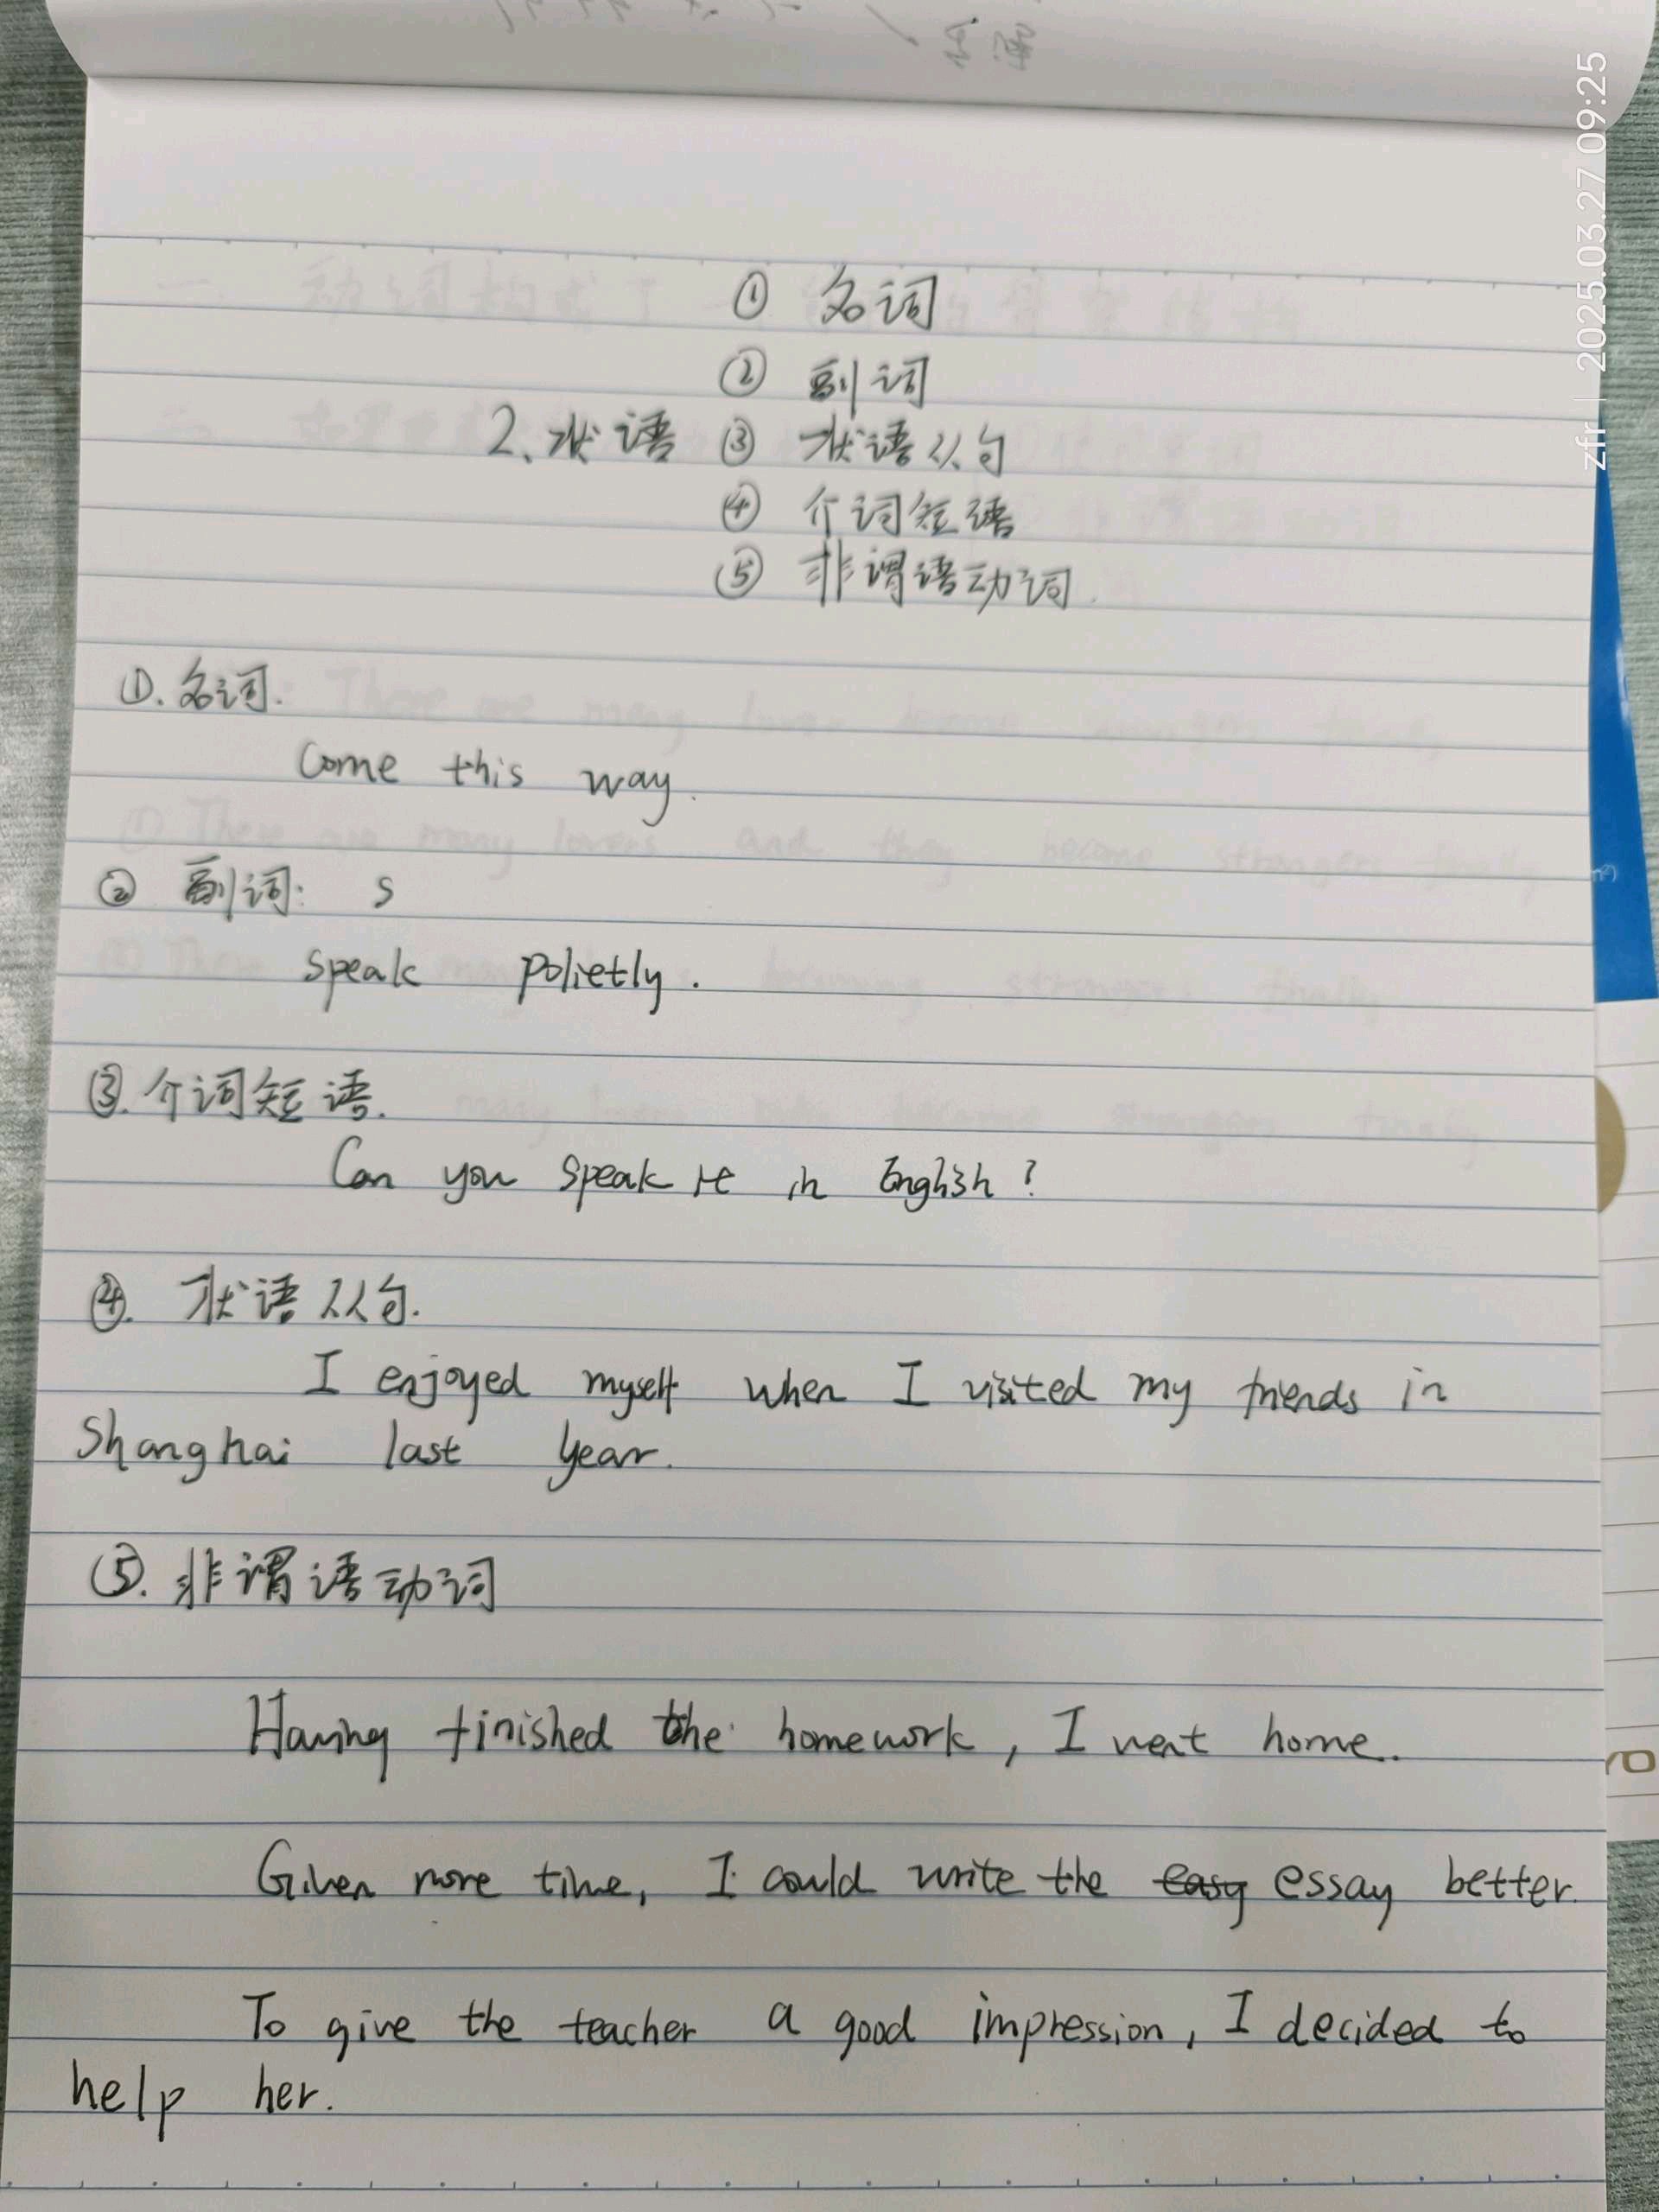 ① 名词
② 副词
2、状语 ③ 状语从句
④ 介词短语
⑤ 非谓语动词.
①. 名词.
Come this way.
② 副词: s
speak polietly.
③. 介词短语.
Can you speak it in English?
④. 状语从句.
I enjoyed myself when I visited my friends in
Shanghai last year.
⑤. 非谓语动词
Having finished the homework, I went home.
Given more time, I could write the easy essay better.
To give the teacher a good impression, I decided to
help her.
zfr | 2025.03.27 09:25